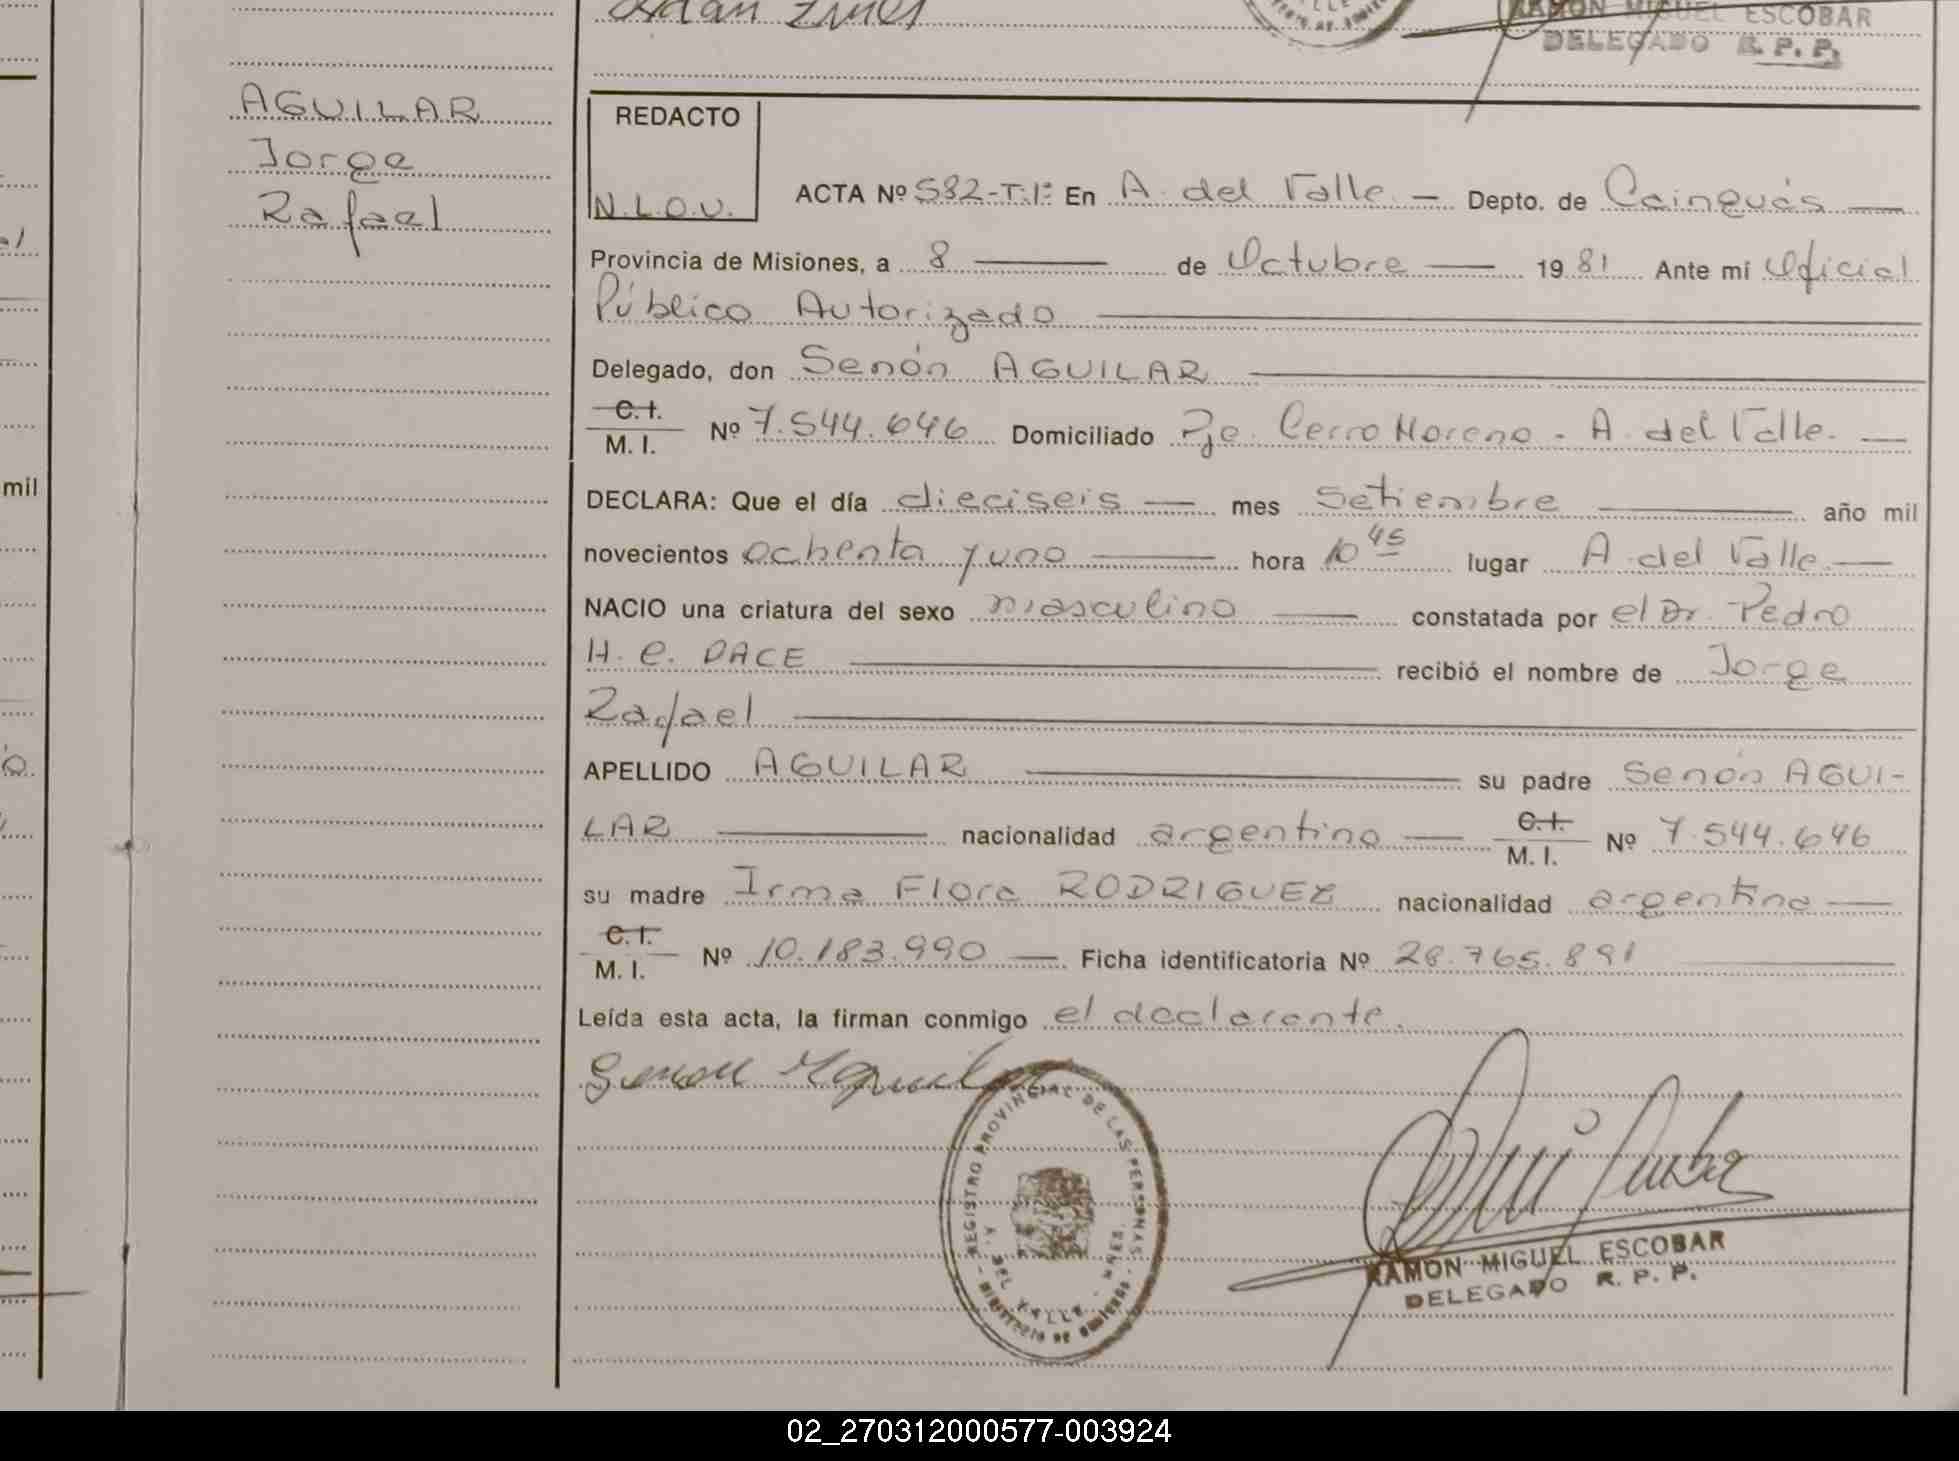 RAMON MIGUEL ESCOBAR
DELEGADO R. P. P.
AGUILAR
Jorge
Rafael
REDACTO
N.L.O.V.
ACTA Nº 582-T:1º En A. del Valle. — Depto. de Cainguás —
Provincia de Misiones, a 8 — de Octubre — 19 81 Ante mí Oficial
Público Autorizado —
Delegado, don Senón AGUILAR —
C. I.
M. I. Nº 7.544.646 Domiciliado Pje. Cerro Moreno - A. del Valle. —
DECLARA: Que el día dieciseis — mes Setiembre — año mil
novecientos ochenta y uno — hora 10 45 lugar A. del Valle. —
NACIO una criatura del sexo masculino — constatada por el Dr. Pedro
H. C. DACE — recibió el nombre de Jorge
Rafael —
APELLIDO AGUILAR — su padre Senón AGUI-
LAR — nacionalidad argentino — C. I. M. I. Nº 7.544.646
su madre Irma Flora RODRIGUEZ nacionalidad argentina —
C. I.
M. I. Nº 10.183.990 — Ficha identificatoria Nº 28.765.891 —
Leída esta acta, la firman conmigo el declarante.
Senon Aguilar
REGISTRO PROVINCIAL DE LAS PERSONAS
A. DEL VALLE - MNES.
MINISTERIO DE GOBIERNO
RAMON MIGUEL ESCOBAR
DELEGADO R. P. P.
mil
02_270312000577-003924